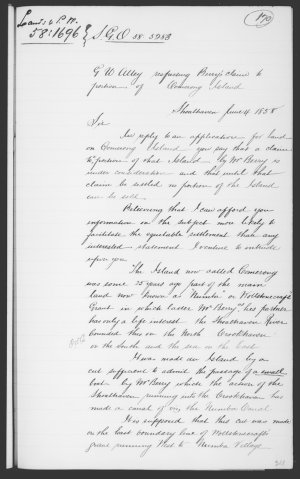 Lands & P.W.
58:1696
S.G.O 58 5983
170
G W Alley respecting Berry's claim to
portion of Comerong Island
Shoalhaven June 4 1858
Sir
In reply to an application for land
on Comerong Island you say that a claim
to "portion" of that Island by Mr Berry is
under consideration and that until that
claim be settled no portion of the Island
can be sold.
Believing that I can afford you
information on the subject more likely to
facilitate the equitable settlement than any
interested statement I venture to intrude
upon you
The Island now called Comerong
was some 25 years ago part of the main
land now known as Numba or Wollstonecraft's
Grant in which latter Mr Berry as his partner
has only a life interest. The Shoalhaven River
bounded this on the North Crookhaven
on the South and the sea on the East
It was made an Island by a
cut sufficient to admit the passage of a small
boat by Mr Berry which the action of the
Shoalhaven running into the Crookhaven has
made a canal of viz the Numba Canal
It is supposed that this cut was made
on the East boundary line of Wollstonecraft's
grant running West to Numba Village